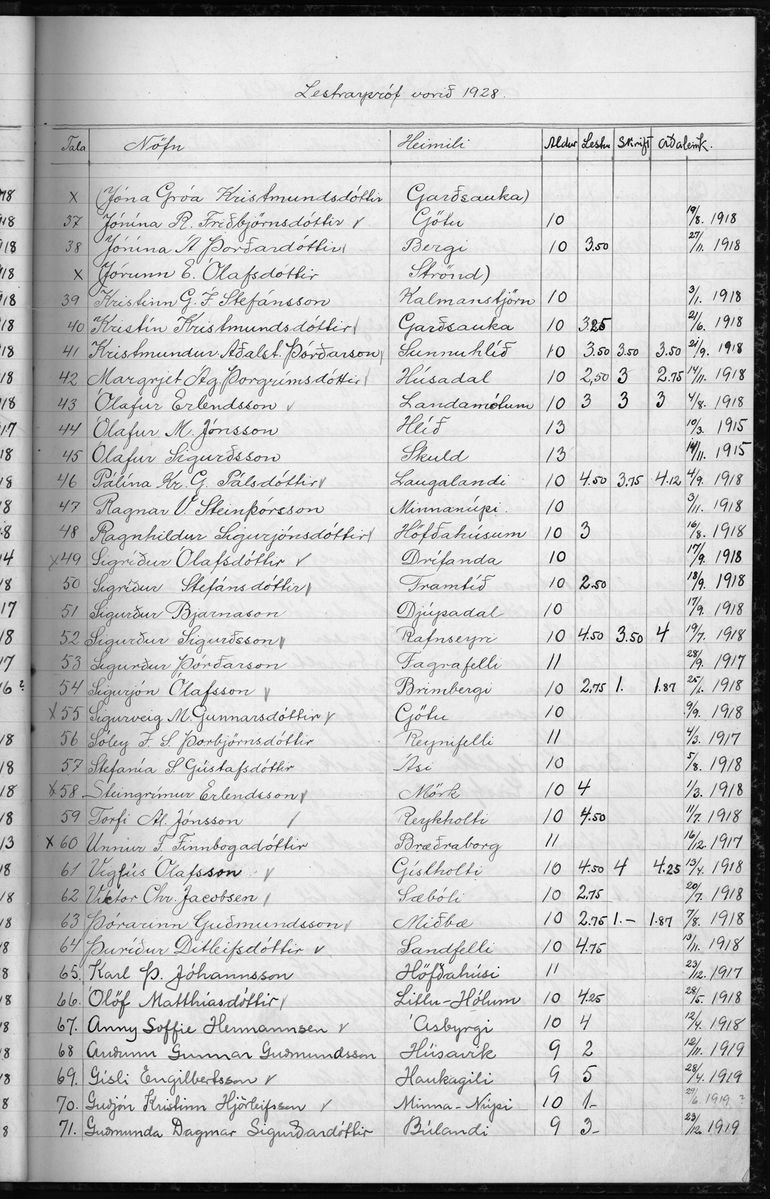 Lestrarpróf vorið 1928.
Tala Nöfn Heimili Aldur Lestur Skrift Aðaleink.
x (Jóna Gróa Kristmundsdóttir Garðsauka)
37 Jónína R. Friðbjörnsdóttir v Götu 10 19/8. 1918
38 Jónína A Þorðardóttir Bergi 10 3.50 27/11. 1918
x (Jórunn E. Ólafsdóttir Strönd)
39 Kristinn G. F Stefánsson Kalmanstjörn 10 3/1. 1918
40 Kristín Kristmundsdóttir Garðsauka 10 3.25 21/6. 1918
41 Kristmundur Aðalst. Þórðarson Sunnuhlíð 10 3.50 3.50 3.50 21/9. 1918
42 Margrjet Ag. Þorgrímsdóttir Húsadal 10 2,50 3 2.75 14/11. 1918
43 Ólafur Erlendsson v Landamótum 10 3 3 3 4/8. 1918
44 Ólafur M. Jónsson Hlíð 13 10/3. 1915
45 Ólafur Sigurðsson Skuld 13 /11. 1915
46 Pálína Kr. G. Pálsdóttir v Laugalandi 10 4.50 3.75 4.12 4/9. 1918
47 Ragnar V Steinþórsson Minnanúpi 10 3/11. 1918
48 Ragnhildur Sigurjónsdóttir Höfðahúsum 10 3 16/8. 1918
x 49 Sigríður Ólafsdóttir v Drífanda 10 17/9. 1918
50 Sigríður Stefánsdóttir Framtíð 10 2.50 18/9. 1918
51 Sigurður Bjarnason Djúpadal 10 17/9 1918
52 Sigurður Sigurðsson Rafnseyri 10 4.50 3.50 4 19/7. 1918
53 Sigurður Þórðarson Fagrafelli 11 28/9. 1917
54 Sigurjón Ólafsson v Brimbergi 10 2.75 1. 1.87 25/1. 1918
x 55 Sigurveig M. Gunnarsdóttir v Götu 10 9/9. 1918
56 Sóley F. S. Þorbjörnsdóttir Reynifelli 11 4/3. 1917
57 Stefanía S Gústafsdóttir Asi 10 5/8. 1918
x 58 Steingrímur Erlendsson v Mörk 10 4 1/3. 1918
59 Torfi Al. Jónsson v Reykholti 10 4.50 11/7. 1918
x 60 Unnur F. Finnbogadóttir Bræðraborg 11 16/12 1917
61 Vigfús Ólafsson v Gíslholti 10 4.50 4 4.25 13/4. 1918
62 Victor Chr. Jacobsen Sæbóli 10 2.75 20/7. 1918
63 Þórarinn Guðmundsson Miðbæ 10 2.75 1.- 1.87 7/8. 1918
64 Þuríður Ditleifsdóttir v Sandfelli 10 4.75 13/11. 1918
65. Karl Þ. Jóhannsson Höfðahúsi 11 23/12. 1917
66. Ólöf Matthíasdóttir Litlu-Hólum 10 4.25 28/5. 1918
67. Anny Soffie Hermannsen v Ásbyrgi 10 4 12/4. 1918
68 Auðunn Gunnar Guðmundsson Húsavík 9 2 12/11. 1919
69. Gísli Engilbertsson v Haukagili 9 5 28/4. 1919
70. Guðjón Kristinn Hjörleifsson v Minna-Núpi 10 1- 29/6. 1919?
71. Guðmunda Dagmar Sigurðardóttir Búlandi 9 3- 23/12. 1919